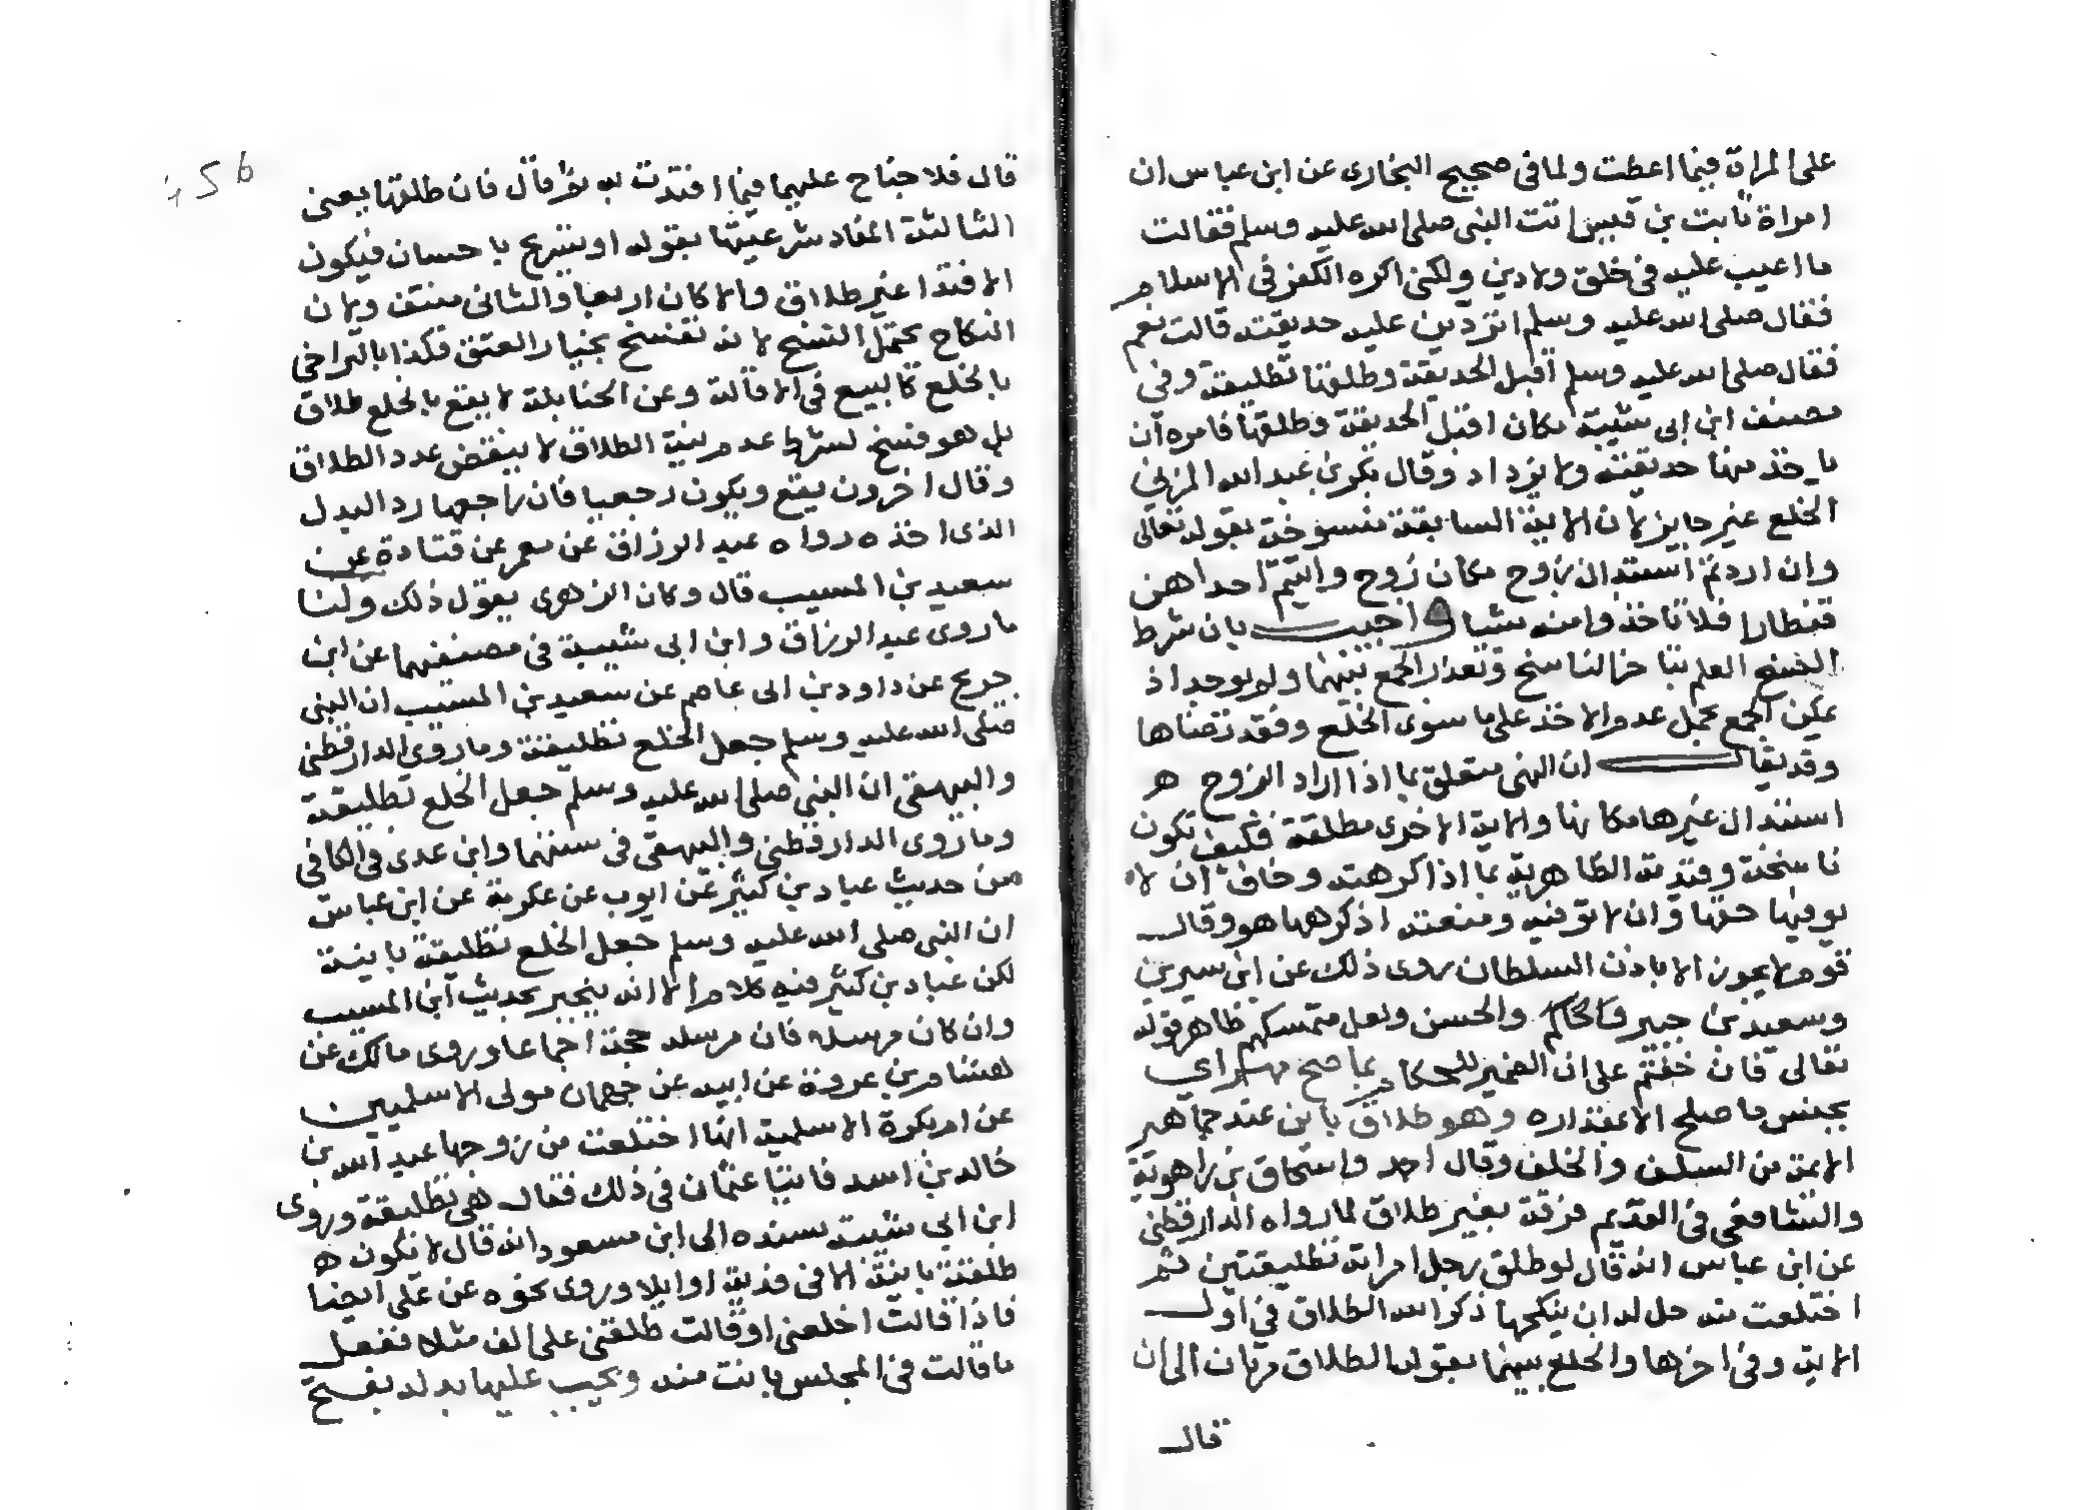 على المراة فيما اعطت ولما فى صحيح البخارى عن ابن عباس ان
امراة ثابت بن قيس اتت النبى صلى الله عليه وسلم فقالت
ما اعيب عليه فى خلق ولا دين ولكنى اكره الكفر فى الاسلام
فقال صلى الله عليه وسلم اتردين عليه حديقته قالت نعم
فقال صلى الله عليه وسلم اقبل الحديقة وطلقها تطليقة وفى
مصنف ابن ابى شيبة مكان اقبل الحديقة وطلقها فامره ان
ياخذ منها حديقته ولا يزداد وقال بكر بن عبد الله المزنى
الخلع غير جايز لان الاية السابقة منسوخة بقوله تعالى
وان اردتم استبدال زوج مكان زوج واتيتم احداهن
قنطارا فلا تاخذوا منه شيا واجيب بان شرط
النسخ العلم بتاخر الناسخ وتعذر الجمع بينهما ولم يوجد اذ
يمكن الجمع بحمل عدم الاخذ على ما سوى الخلع وفقد تضناها
وقد يقال ان النهى متعلق بما اذا اراد الزوج ه
استبدال غيرها مكانها والاية الاخرى مطلقة فكيف تكون
ناسخة وقيدته الظاهرية بما اذا كرهته وخاف ان لا
يوفيها حقها وان لا توفيه ومنعته اذ كرهها هو وقال
قوم لا يجوز الا باذن السلطان روى ذلك عن ابن سيرين
وسعيد بن جبير والحسن ولعل متمسكهم ظاهر قوله
تعالى فان خفتم على ان الضمير للحكام بما صح مهرا اي
بجنس ما صلح الاعتذاره وهو طلاق باين عند جماهير
الايمة من السلف والخلف وقال احمد واسحاق بن راهوية
والشافعى فى القديم فرقة بغير طلاق لما رواه الدارقطنى
عن ابن عباس انه قال لو طلق رجل امراته تطليقتين ثم
اختلعت منه حل له ان ينكحها ذكر الله الطلاق فى اول
الاية وفى اخرها والخلع بينهما بقوله الطلاق مرتان الى ان
قال
قال فلا جناح عليهما فيما افتدت به ثم قال فان طلقها يعنى
الثالثة المفاد شرعيتها بقوله او تسريح باحسان فيكون
الافتدا غير طلاق والا كان اربعا والثانى منتف ولان
النكاح يحتمل الفسخ لانه تفسخ بخيار العتق فكذا بالتراخى
بالخلع كالبيع فى الاقالة وعن الحنابلة لا يقع بالخلع طلاق
بل هو فسخ لشرط عدم نية الطلاق لا ينقص عدد الطلاق
وقال اخرون يقع ويكون رجعيا فان راجعها رد البدل
الذى اخذه رواه عبد الرزاق عن معمر عن قتادة عن
سعيد بن المسيب قال وكان الزهرى يقول ذلك ولنا
ما روى عبد الرزاق وابن ابى شيبة فى مصنفيهما عن ابن
جريج عن داود بن ابى عاصم عن سعيد بن المسيب ان النبى
صلى الله عليه وسلم جعل الخلع تطليقة وما روى الدارقطنى
والبيهقى ان النبى صلى الله عليه وسلم جعل الخلع تطليقة
وما روى الدارقطنى والبيهقى فى سننهما وابن عدى فى الكافى
من حديث عباد بن كثير عن ايوب عن عكرمة عن ابن عباس
ان النبى صلى الله عليه وسلم جعل الخلع تطليقة باينة
لكن عباد بن كثير فيه كلام الا انه ينجبر بحديث ابن المسيب
وان كان مرسله فان مرسله حجة اجماعا وروى مالك عن
هشام بن عروة عن ابيه عن جهمان مولى الاسلميين
عن ام بكرة الاسلمية انها اختلعت من زوجها عبد الله بن
خالد بن اسد فاتيا عثمان فى ذلك فقال هى تطليقة وروى
ابن ابى شيبة بسنده الى ابن مسعود انه قال لا تكون ه
طلقة باينة الا فى فدية او ايلا وروى نحوه عن على ايضا
فاذا قالت اخلعنى او قالت طلقنى على الف مثلا ففعل
ما قالت فى المجلس بانت منه ويجب عليها بدله بفسخ